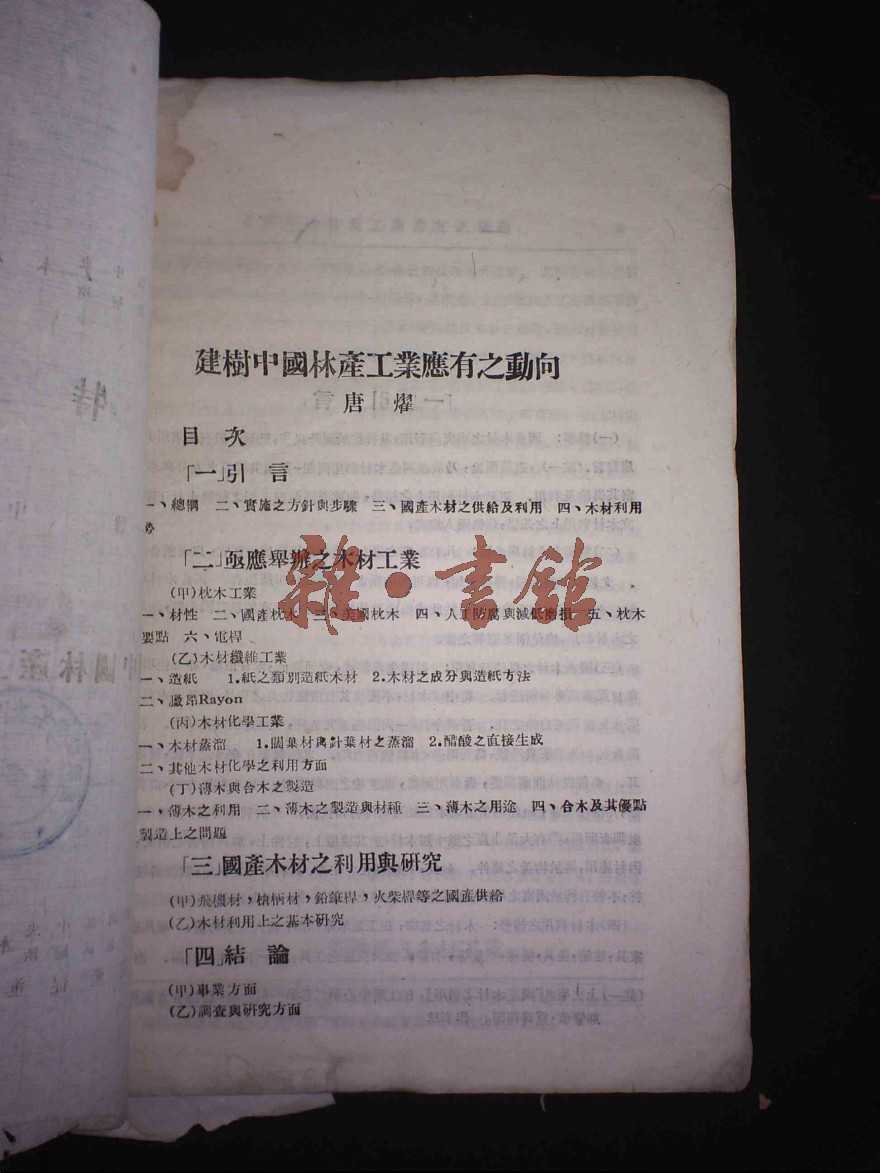 建樹中國林產工業應有之動向
唐燿
目次
「一」引言
一、總綱 二、實施之方針與步驟 三、國產木材之供給及利用 四、木材利用
勢
「二」亟應舉辦之木材工業
(甲)枕木工業
一、材性 二、國產枕木 三、美國枕木 四、人工防腐與減低磨損 五、枕木
要點 六、電桿
(乙)木材纖維工業
一、造紙 1.紙之類別造紙木材 2.木材之成分與造紙方法
二、Rayon
(丙)木材化學工業
一、木材蒸溜 1.闊葉材與針葉材之蒸溜 2.醋酸之直接生成
二、其他木材化學之利用方面
(丁)薄木與合木之製造
一,薄木之利用 二、薄木之製造與材種 三、薄木之用途 四、合木及其優點
製造上之問題
「三」國產木材之利用與研究
(甲)飛機材,槍柄材,鉛筆桿,火柴桿等之國產供給
(乙)木材利用上之基本研究
「四」結論
(甲)事業方面
(乙)調查與研究方面
雜·書館